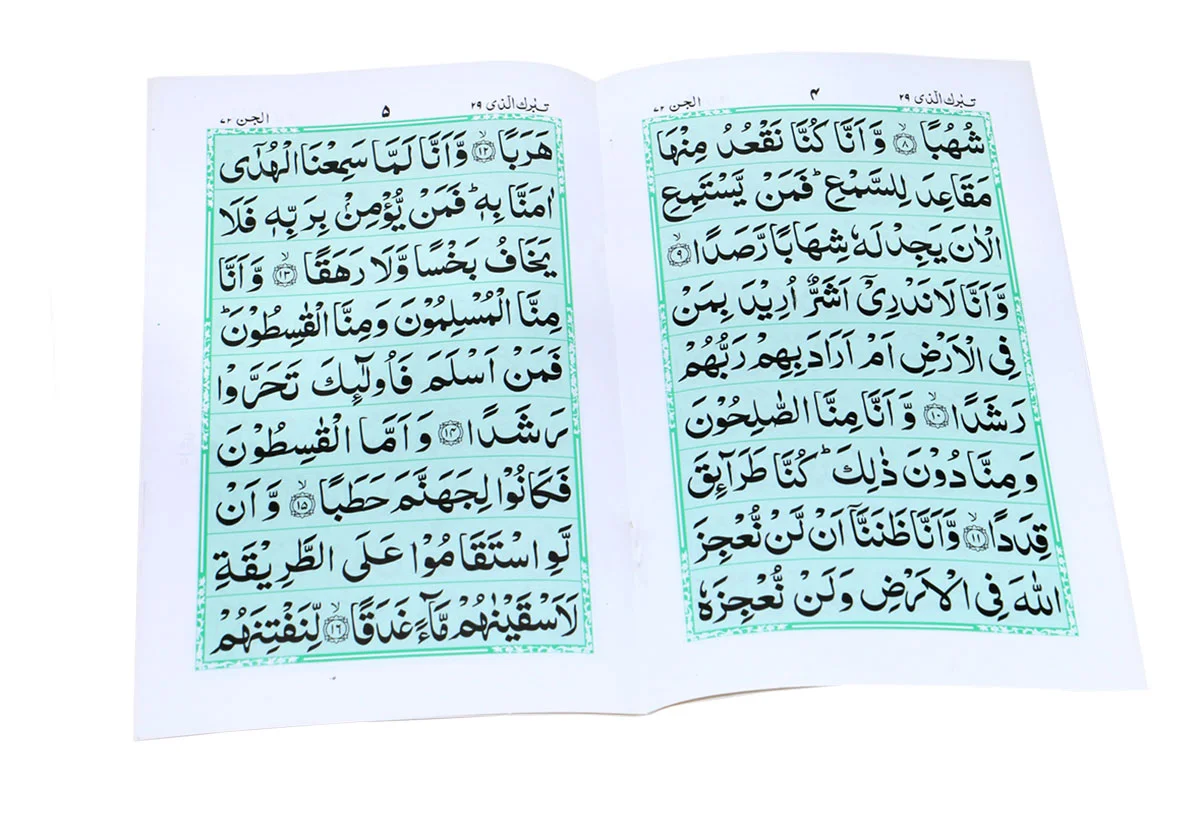 تبٰرك الّذی ٢٩
۴
الجن ٧٢
شُهُبًا ۙ﴿٨﴾ وَّ اَنَّا كُنَّا نَقْعُدُ مِنْهَا
مَقَاعِدَ لِلسَّمْعِ ؕ فَمَنْ يَّسْتَمِعِ
الْاٰنَ يَجِدْ لَهٗ شِهَابًا رَّصَدًا ۙ﴿٩﴾
وَّ اَنَّا لَا نَدْرِیْۤ اَشَرٌّ اُرِيْدَ بِمَنْ
فِی الْاَرْضِ اَمْ اَرَادَ بِهِمْ رَبُّهُمْ
رَشَدًا ۙ﴿١٠﴾ وَّ اَنَّا مِنَّا الصّٰلِحُوْنَ
وَ مِنَّا دُوْنَ ذٰلِكَ ؕ كُنَّا طَرَآئِقَ
قِدَدًا ۙ﴿١١﴾ وَّ اَنَّا ظَنَنَّاۤ اَنْ لَّنْ نُّعْجِزَ
اللّٰهَ فِی الْاَرْضِ وَ لَنْ نُّعْجِزَهٗ
تبٰرك الّذی ٢٩
۵
الجن ٧٢
هَرَبًا ۙ﴿١٢﴾ وَّ اَنَّا لَمَّا سَمِعْنَا الْهُدٰۤی
اٰمَنَّا بِهٖ ؕ فَمَنْ يُّؤْمِنْۢ بِرَبِّهٖ فَلَا
يَخَافُ بَخْسًا وَّ لَا رَهَقًا ۙ﴿١٣﴾ وَّ اَنَّا
مِنَّا الْمُسْلِمُوْنَ وَ مِنَّا الْقٰسِطُوْنَ ؕ
فَمَنْ اَسْلَمَ فَاُولٰٓئِكَ تَحَرَّوْا
رَشَدًا ﴿١۴﴾ وَ اَمَّا الْقٰسِطُوْنَ
فَكَانُوْا لِجَهَنَّمَ حَطَبًا ۙ﴿١۵﴾ وَّ اَنْ
لَّوِ اسْتَقَامُوْا عَلَی الطَّرِيْقَةِ
لَاَسْقَيْنٰهُمْ مَّآءً غَدَقًا ۙ﴿١٦﴾ لِّنَفْتِنَهُمْ